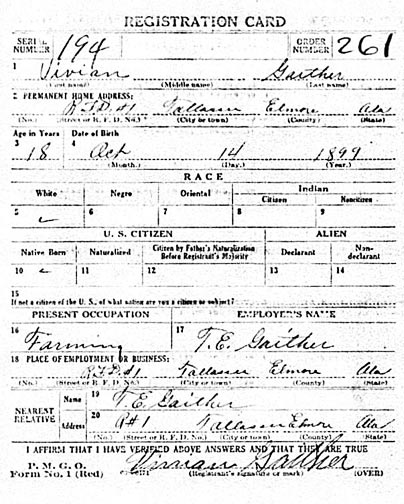 REGISTRATION CARD
SERIAL NUMBER 194 ORDER NUMBER 261
1 Vivian Gaither
(First name) (Middle name) (Last name)
2 PERMANENT HOME ADDRESS:
R.F.D. #1 Tallassee Elmore Ala
(No.) (Street or R. F. D. No.) (City or town) (County) (State)
Age in Years Date of Birth
3 18 4 Oct 14 1899
(Month.) (Day.) (Year.)
RACE
White Negro Oriental Indian
Citizen Noncitizen
5 6 7 8 9
U. S. CITIZEN ALIEN
Native Born Naturalized Citizen by Father's Naturalization Before Registrant's Majority Declarant Non-declarant
10 11 12 13 14
15
If not a citizen of the U. S., of what nation are you a citizen or subject?
PRESENT OCCUPATION EMPLOYER'S NAME
16 Farming 17 T. E. Gaither
18 PLACE OF EMPLOYMENT OR BUSINESS:
R.F.D. #1 Tallassee Elmore Ala
(No.) (Street or R. F. D. No.) (City or town) (County) (State)
NEAREST RELATIVE Name 19 T. E. Gaither
Address 20 R#1 Tallassee Elmore Ala
(No.) (Street or R. F. D. No.) (City or town) (County) (State)
I AFFIRM THAT I HAVE VERIFIED ABOVE ANSWERS AND THAT THEY ARE TRUE
P. M. G. O.
Form No. 1 (Red) Gaither
(Registrant's signature or mark) (OVER)